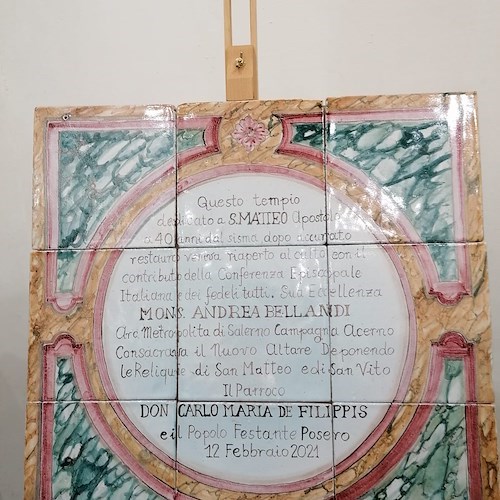 Questo tempio
dedicato a S.MATTEO Apostolo
a 40 anni dal sisma dopo accurato
restauro veniva riaperto al culto con il
contributo della Conferenza Episcopale
Italiana e dei fedeli tutti. Sua Eccellenza
MONS. ANDREA BELLANDI
Arc. Metropolita di Salerno Campagna Acerno
Consacrava il Nuovo Altare Deponendo
le Reliquie di San Matteo e di San Vito
Il Parroco
DON CARLO MARIA DE FILIPPIS
e il Popolo Festante Posero
12 Febbraio 2021